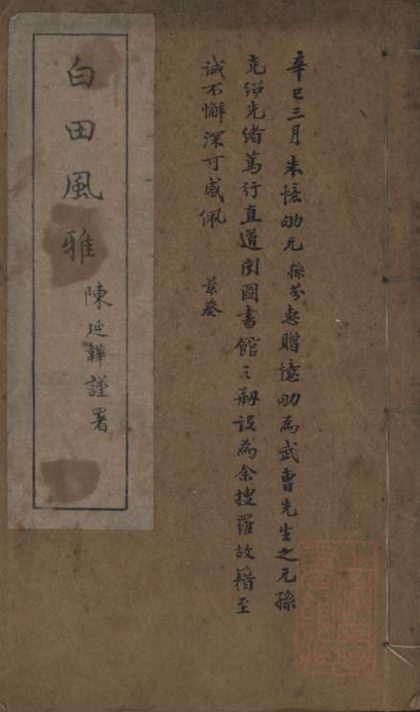 辛巳三月朱憶劬兄孫芬惠贈憶劬為武曹先生之元孫
克紹先緒篤行直道聞圖書館之剏設為余搜羅故籍至
誠不懈深可感佩 景葵
白田風雅
陳延韡謹署